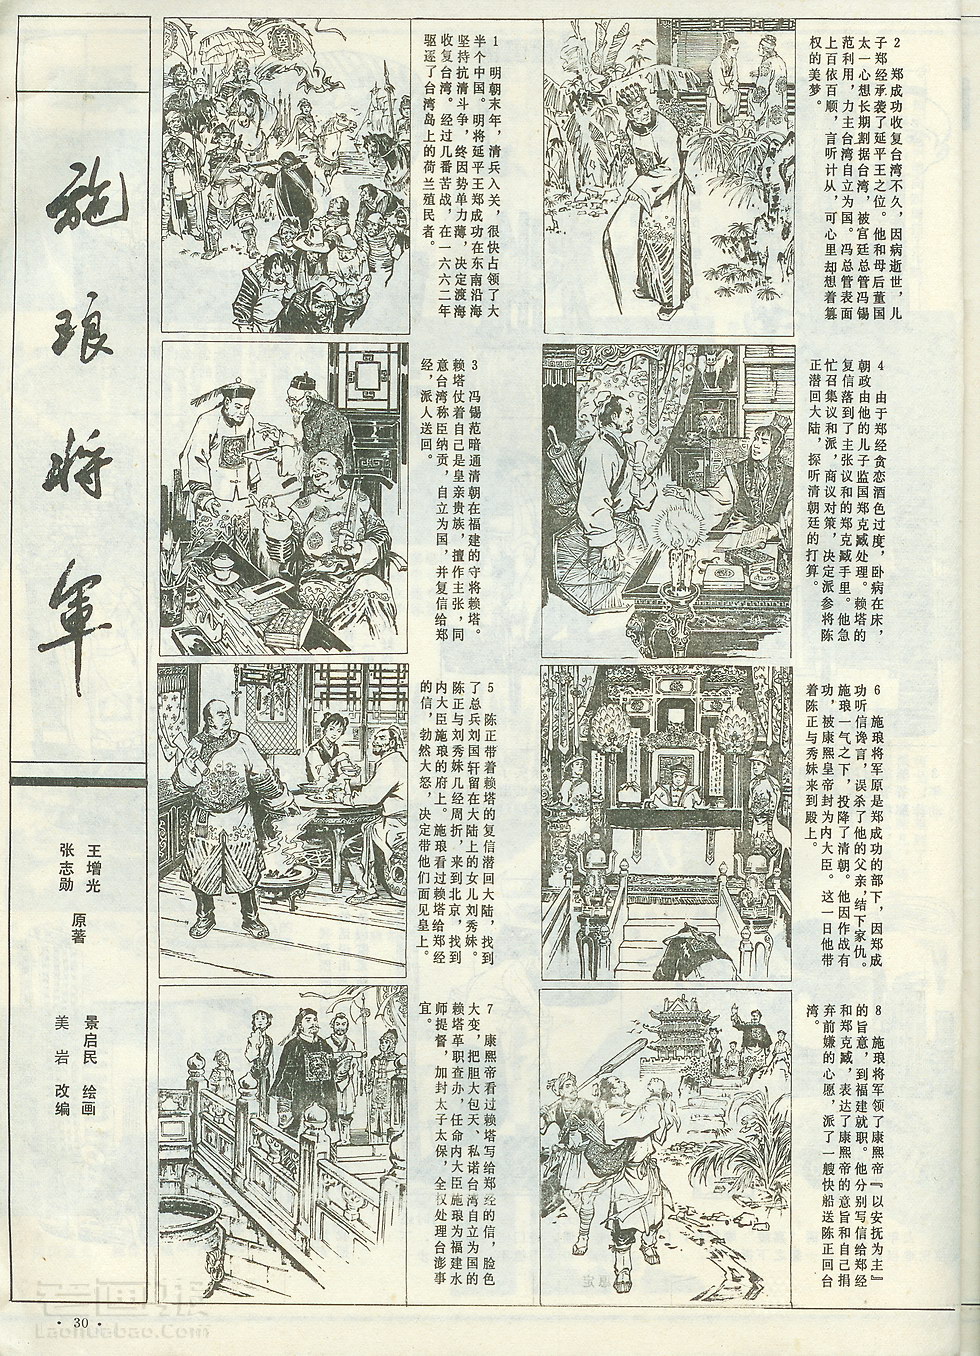 施琅将军
王增光
张志勋 原著
景启民 绘画
美岩 改编
1 明朝末年，清兵入关，很快占领了大
半个中国。明将延平王郑成功在东南沿海
坚持抗清斗争，终因势单力薄，决定渡海
收复台湾。经过几番苦战，在一六六二年
驱逐了台湾岛上的荷兰殖民者。
2 郑成功收复台湾不久，因病逝世，儿
子郑经承袭了延平王之位。他和母后董国
太一心想长期割据台湾，被宫廷总管冯锡
范利用，力主台湾自立为国。冯总管表面
上百依百顺，言听计从，可心里却想着篡
权的美梦。
3 冯锡范暗通清朝在福建的守将赖塔。
赖塔仗着自己是皇亲贵族，擅作主张，同
意台湾称臣纳贡，自立为国，并复信给郑
经，派人送回。
4 由于郑经贪恋酒色过度，卧病在床，
朝政由他的儿子监国郑克臧处理。赖塔的
复信落到了主张议和的郑克臧手里。他急
忙召集议和派，商议对策，决定派参将陈
正潜回大陆，探听清朝廷的打算。
5 陈正带着赖塔的复信潜回大陆，找到
了总兵刘国轩留在大陆上的女儿刘秀妹。
陈正与刘秀妹几经周折，来到北京，找到
内大臣施琅的府上。施琅看过赖塔给郑经
的信，勃然大怒，决定带他们面见皇上。
6 施琅将军原是郑成功的部下，因郑成
功听信谗言，误杀了他的父亲，结下家仇。
施琅一气之下，投降了清朝。他因作战有
功，被康熙皇帝封为内大臣。这一日他带
着陈正与秀妹来到殿上。
7 康熙帝看过赖塔写给郑经的信，脸色
大变，把胆大包天、私诺台湾自立为国的
赖塔革职查办，任命内大臣施琅为福建水
师提督，加封太子太保，全权处理台澎事
宜。
8 施琅将军领了康熙帝『以安抚为主』
的旨意，到福建就职。他分别写信给郑经
和郑克臧，表达了康熙帝的意旨和自己捐
弃前嫌的心愿，派了一艘快船送陈正回台
湾。
·30·
老画报
Laohuabao.Com